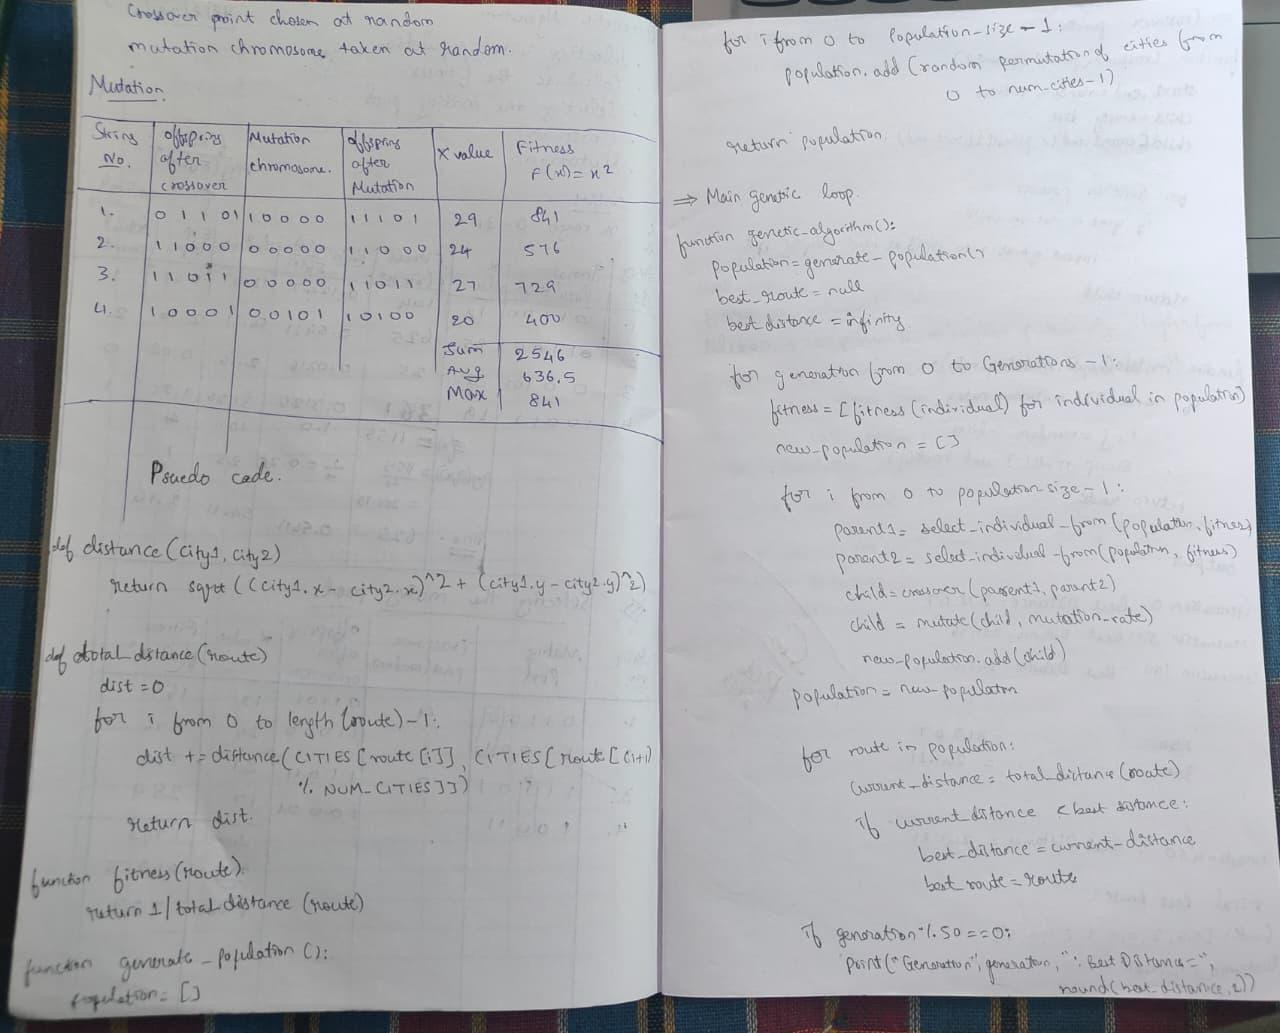 Crossover point chosen at random
mutation chromosome taken at random.
Mutation
String No. | offspring after crossover | Mutation chromosome. | offspring after Mutation | X value | Fitness F(x) = x2
1. 0 1 1 0 1 | 1 0 0 0 0 | 1 1 1 0 1 | 29 | 841
2. 1 1 0 0 0 | 0 0 0 0 0 | 1 1 0 0 0 | 24 | 576
3. 1 1 0 1 1 | 0 0 0 0 0 | 1 1 0 1 1 | 27 | 729
4. 1 0 0 0 1 | 0 0 1 0 1 | 1 0 1 0 0 | 20 | 400
Sum 2546
Avg 636.5
Max 841
Psuedo code.
def distance (city1, city2)
return sqrt ((city1.x - city2.x)^2 + (city1.y - city2.y)^2)
def total distance (route)
dist = 0
for i from 0 to length (route) - 1:
dist += distance (CITIES [route [i]], CITIES [route [(i+1)
% NUM_CITIES]])
return dist.
function fitness (route)
return 1 / total distance (route)
function generate_population ():
population = []
for i from 0 to population_size - 1:
population.add (random permutation of cities from
0 to num_cities-1)
return population.
⇒ Main genetic loop.
function genetic_algorithm():
population = generate_population()
best_route = null
best distance = infinity
for generation from 0 to Generations - 1:
fitness = [fitness (individual) for individual in population)
new_population = []
for i from 0 to population size - 1:
parent1 = select_individual_from (population, fitness)
parent2 = select_individual_from (population, fitness)
child = crossover (parent1, parent2)
child = mutate (child, mutation_rate)
new_population.add (child)
population = new_population
for route in population:
current_distance = total_distance (route)
if current distance < best distance:
best_distance = current_distance
best route = route
if generation % 50 == 0:
print ("Generation", generation, ": Best Distance=",
round (best_distance, 2))